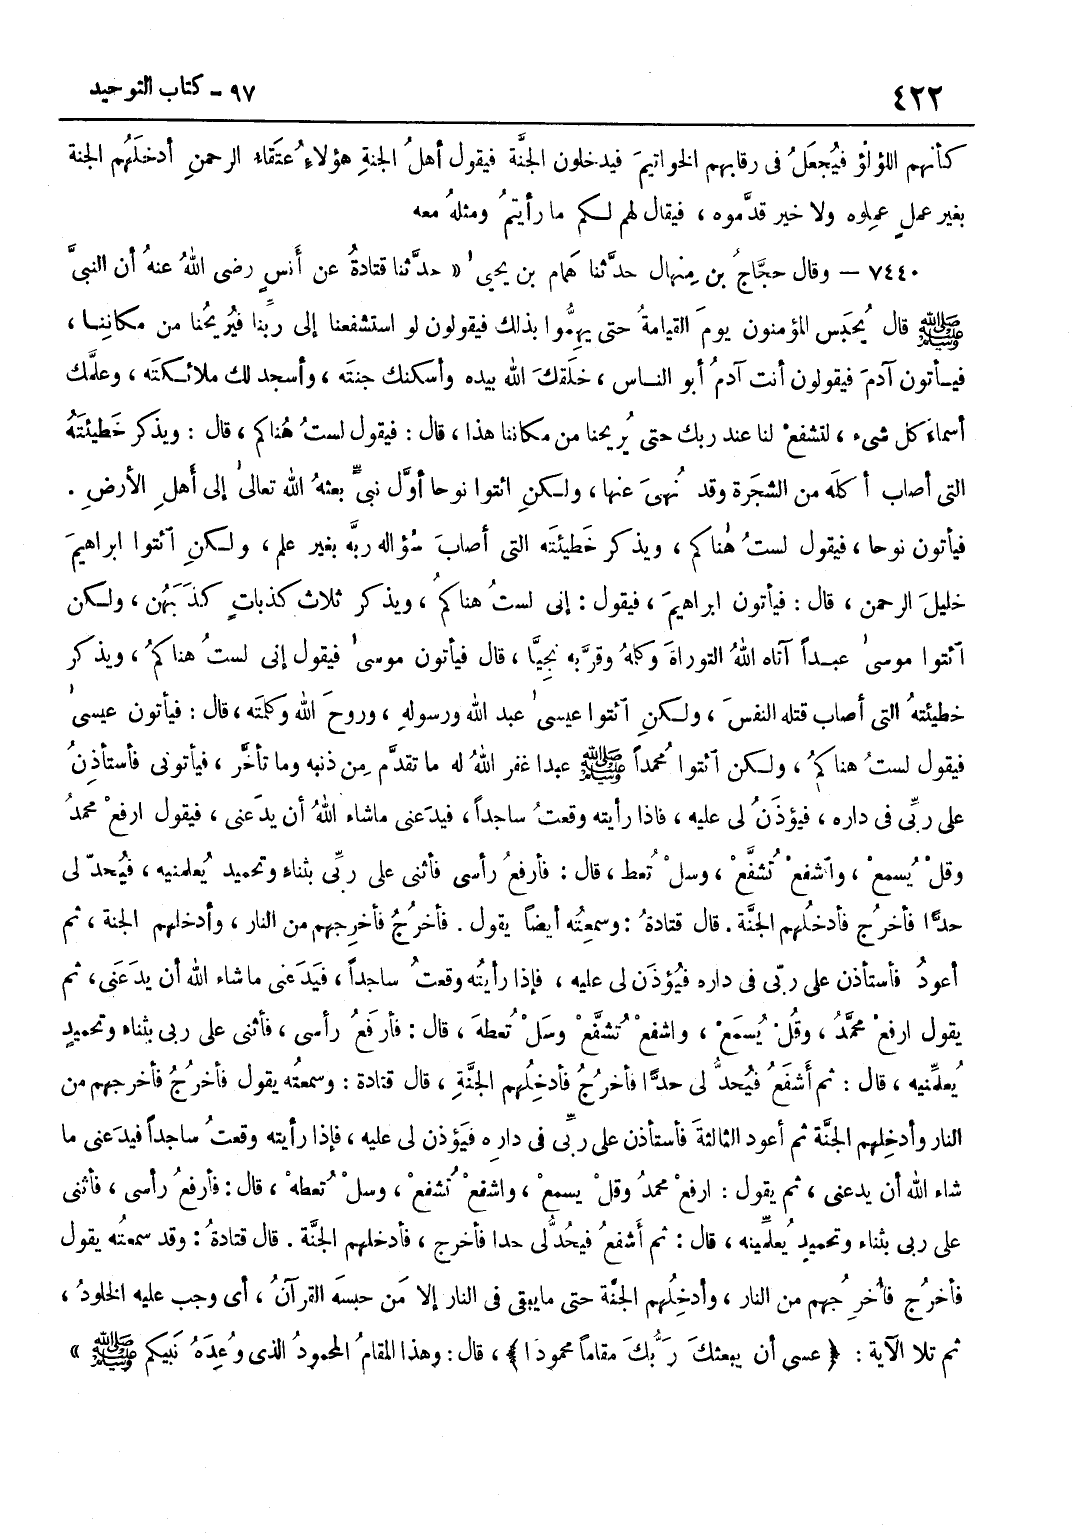 ٤٢٢ ٩٧ - كتاب التوحيد
كأنهم اللؤلؤ فيُجعَلُ فى رقابهم الخواتيمَ فيدخلون الجنَّة فيقول أهلُ الجنةِ هؤلاءِ عُتَقاء الرحمنِ أدخلَهُم الجنة
بغير عملٍ عمِلوه ولا خير قدَّموه ، فيقال لهم لـكم ما رأيتمُ ومثلهُ معه
٧٤٤٠ – وقال حجَّاجُ بن مِنهال حدَّثنا هَمام بن يحيىٰ « حدَّثنا قتادةُ عن أَنسٍ رضى اللهُ عنهُ أن النبىَّ
ﷺ قال يُحبَس المؤمنون يومَ القيامةُ حتى يهمُّوا بذلك فيقولون لو استشفعنا إلى ربِّنا فيُريحُنا من مكاننـا ،
فيـأتون آدمَ فيقولون أنت آدمُ أبو النـاس ، خلَقكَ الله بيده وأسكنك جنته ، وأسجد لك ملائـكتَه ، وعلَّمك
أسماءَ كل شىء ، لتشفعْ لنا عند ربك حتى يُريحنا من مكاننا هذا ، قال : فيقول لستُ هُناكم ، قال : ويذكر خَطيئتَهُ
التى أصاب أكلَه من الشجَرة وقد نُهىَ عنها ، ولـكنِ ائتوا نوحا أوَّل نبىٍّ بعثهُ الله تعالىٰ إلى أَهلِ الأرضِ .
فيأتون نوحا ، فيقول لستُ هُناكم ، ويذكر خَطيئتَه التى أصابَ سُؤاله ربَّه بغير علم ، ولـكنِ ٱئتوا ابراهيمَ
خليلَ الرحمن ، قال : فيأتون ابراهيمَ ، فيقول : إنى لستُ هناكمُ ، ويذكر ثلاث كذباتٍ كذَبَهُن ، ولـكن
ٱئتوا موسىٰ عبـداً آتاه اللهُ التوراةَ وكلمهُ وقرَّبه نجِيًّا ، قال فيأتون موسىٰ فيقول إنى لستُ هناكمُ ، ويذكر
خطيئتهُ التى أصاب قتله النفسَ ، ولـكنِ ٱئتوا عيسىٰ عبد الله ورسولهِ ، وروحَ الله وكلمتَه ، قال : فيأتون عيسىٰ
فيقول لستُ هناكمُ ، ولـكن ٱئتوا مُحمداً ﷺ عبدا غفر اللهُ له ما تقدَّم مِن ذنبه وما تأخَّر ، فيأتونى فأستأذِنُ
على ربِّى فى داره ، فيؤذَنُ لى عليه ، فاذا رأيته وقعتُ ساجداً ، فيدَعنى ماشاء اللهُ أن يدَعنى ، فيقول ارفعْ محمدُ
وقلْ يُسمعْ ، وٱشفعْ تُشفَّعْ ، وسلْ تُعط ، قال : فأرفعُ رأسى فأثنى على ربِّى بثناء وتحميد يُعلمنيه ، فيُحدّ لى
حدًّا فأخرُج فأدخلُهم الجنَّة . قال قتادةُ : وسمعتُه أيضاً يقول . فأخرُجُ فأخرِجهم من النار ، وأدخلهم الجنة ، ثم
أعودُ فأستأذن على ربّى فى داره فيُؤذَن لى عليه ، فإذا رأيتُه وقعتُ ساجداً ، فيَدَعنى ماشاء الله أن يدَعَنى، ثم
يقول ارفعْ محمَّدُ ، وقُلْ يُسمَعْ ، واشفعْ تُشفَّعْ وسَلْ تُعطهَ ، قال : فأرفَعُ رأسى ، فأثنى على ربى بثناء وتحميدٍ
يُعلِّمنيه ، قال : ثم أَشفَعُ فيُحدُّ لى حدًّا فأخرُجُ فأدخلُهم الجنَّةِ ، قال قتادة : وسمعتُه يقول فأخرُجُ فأخرجهم من
النار وأدخِلهم الجنَّة ثم أعود الثالثةَ فأستأذن على ربِّى فى دارِه فيَؤذن لى عليه ، فإذا رأيته وقعتُ ساجداً فيدَعنى ما
شاء الله أن يدعنى ، ثم يقول : ارفعْ محمدُ وقلْ يسمعْ ، واشفعْ تُشفعْ ، وسلْ تُعطهْ ، قال : فأرفعُ رأسى ، فأثنى
على ربى بثناء وتحميدٍ يُعلِّمنيه ، قال : ثم أَشفعُ فيحُدُّ لى حدا فأخرج ، فأدخلهم الجنَّة . قال قتادةُ : وقد سمعتُه يقول
فأخرُج فأُخرِجُهم من النار ، وأدخِلُهم الجنَّة حتى مايبقى فى النار إلا مَن حبسَه القرآنُ ، أى وجب عليه الخلودُ ،
ثم تلا الآية : ﴿ عسى أن يبعثكَ رَبُّكَ مقاماً محمودًا ﴾ ، قال : وهذا المقامُ المحمودُ الذى وُعِدَهُ نَبيكم ﷺ »